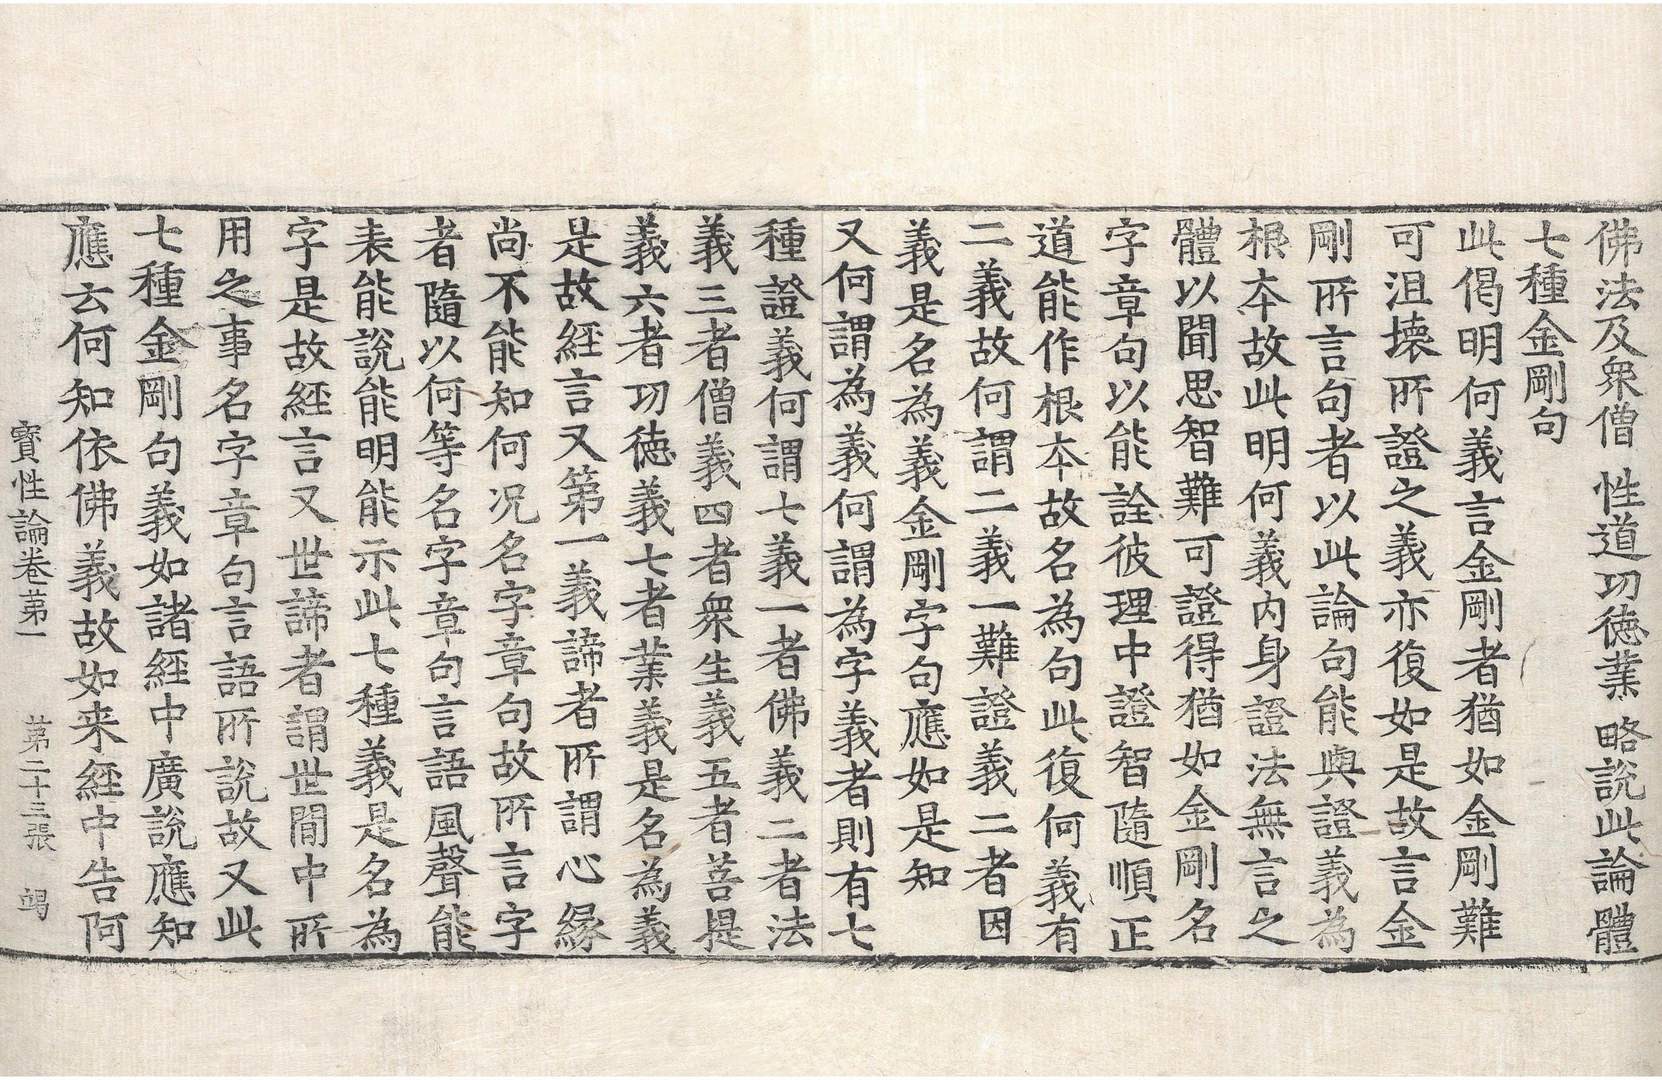 佛法及衆僧 性道功徳業 略說此論體
七種金剛句
此偈明何義言金剛者猶如金剛難
可沮壊所證之義亦復如是故言金
剛所言句者以此論句能與證義為
根本故此明何義内身證法無言之
體以聞思智難可證得猶如金剛名
字章句以能詮彼理中證智隨順正
道能作根本故名為句此復何義有
二義故何謂二義一難證義二者因
義是名為義金剛字句應如是知
又何謂為義何謂為字義者則有七
種證義何謂七義一者佛義二者法
義三者僧義四者衆生義五者菩提
義六者功徳義七者業義是名為義
是故經言又第一義諦者所謂心縁
尚不能知何况名字章句故所言字
者隨以何等名字章句言語風聲能
表能說能明能示此七種義是名為
字是故經言又世諦者謂世間中所
用之事名字章句言語所說故又此
七種金剛句義如諸經中廣說應知
應云何知依佛義故如来經中告阿
寳性論卷第一 第二十三張 竭